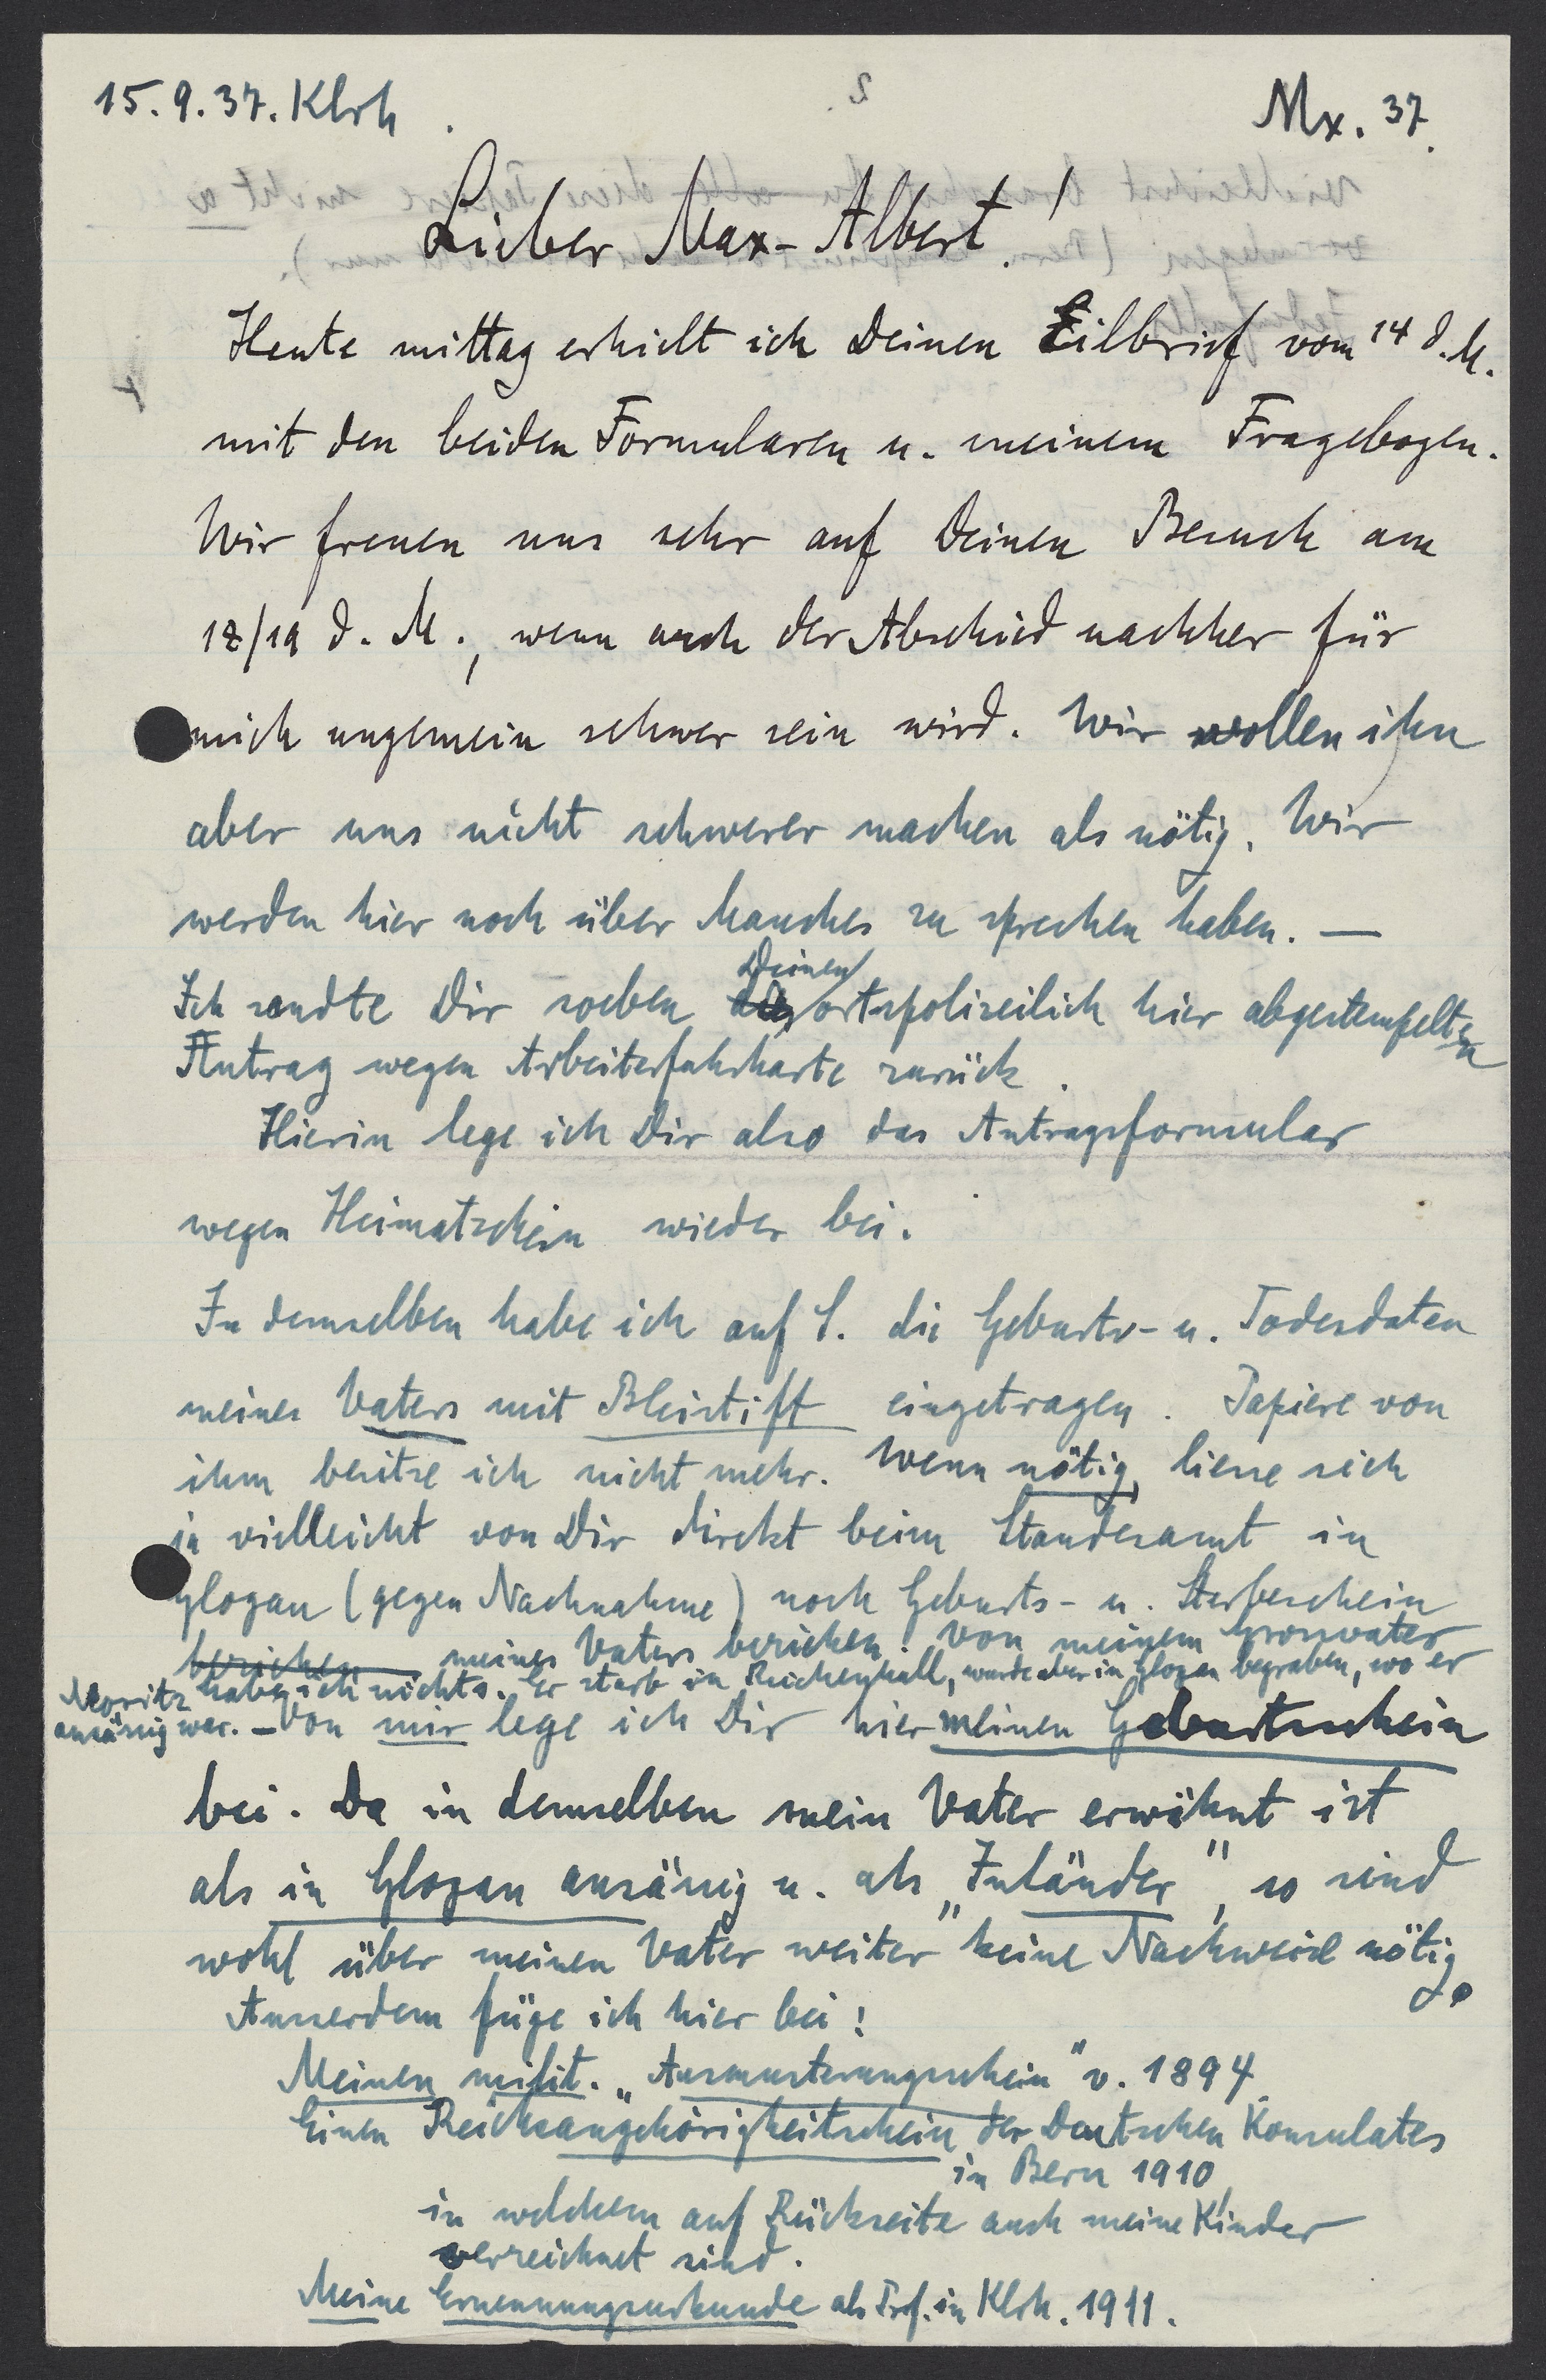 15.9.37. Klrh.
Mx. 37.
Lieber Max-Albert!
Heute mittag erhielt ich Deinen Eilbrief vom 14 d. M.
mit den beiden Formularen u. meinem Fragebogen.
Wir freuen uns sehr auf Deinen Besuch am
18/19 d. M., wenn auch der Abschied nachher für
mich ungemein schwer sein wird. Wir wollen ihn
aber uns nicht schwerer machen als nötig. Wir
werden hier noch über Manches zu sprechen haben. —
Ich sandte Dir soeben Deinen ortspolizeilich hier abgestempelten
Antrag wegen Arbeiterfahrkarte zurück.
Hierin lege ich Dir also das Antragsformular
wegen Heimatschein wieder bei.
In demselben habe ich auf S. die Geburts- u. Todesdaten
meines Vaters mit Bleistift eingetragen. Papiere von
ihm besitze ich nicht mehr. Wenn nötig, liesse sich
ja vielleicht von Dir direkt beim Standesamt in
Glogau (gegen Nachnahme) noch Geburts- u. Sterbeschein
beziehen meines Vaters beziehen. Von meinem Grossvater
Moritz habe ich nichts. Er starb in Reichenhall, wurde aber in Glogau begraben, wo er
ansässig war. — Von mir lege ich Dir hier meinen Geburtsschein
bei. Da in demselben mein Vater erwähnt ist
als in Glogau ansässig u. als „Inländer", so sind
wohl über meinen Vater weiter keine Nachweise nötig.
Ausserdem füge ich hier bei:
Meinen milit. „Ausmusterungsschein" v. 1894
Einen Reichsangehörigkeitschein des Deutschen Konsulates
in Bern 1910,
in welchem auf Rückseite auch meine Kinder
verzeichnet sind.
Meine Ernennungsurkunde als Prof. in Klrh. 1911.